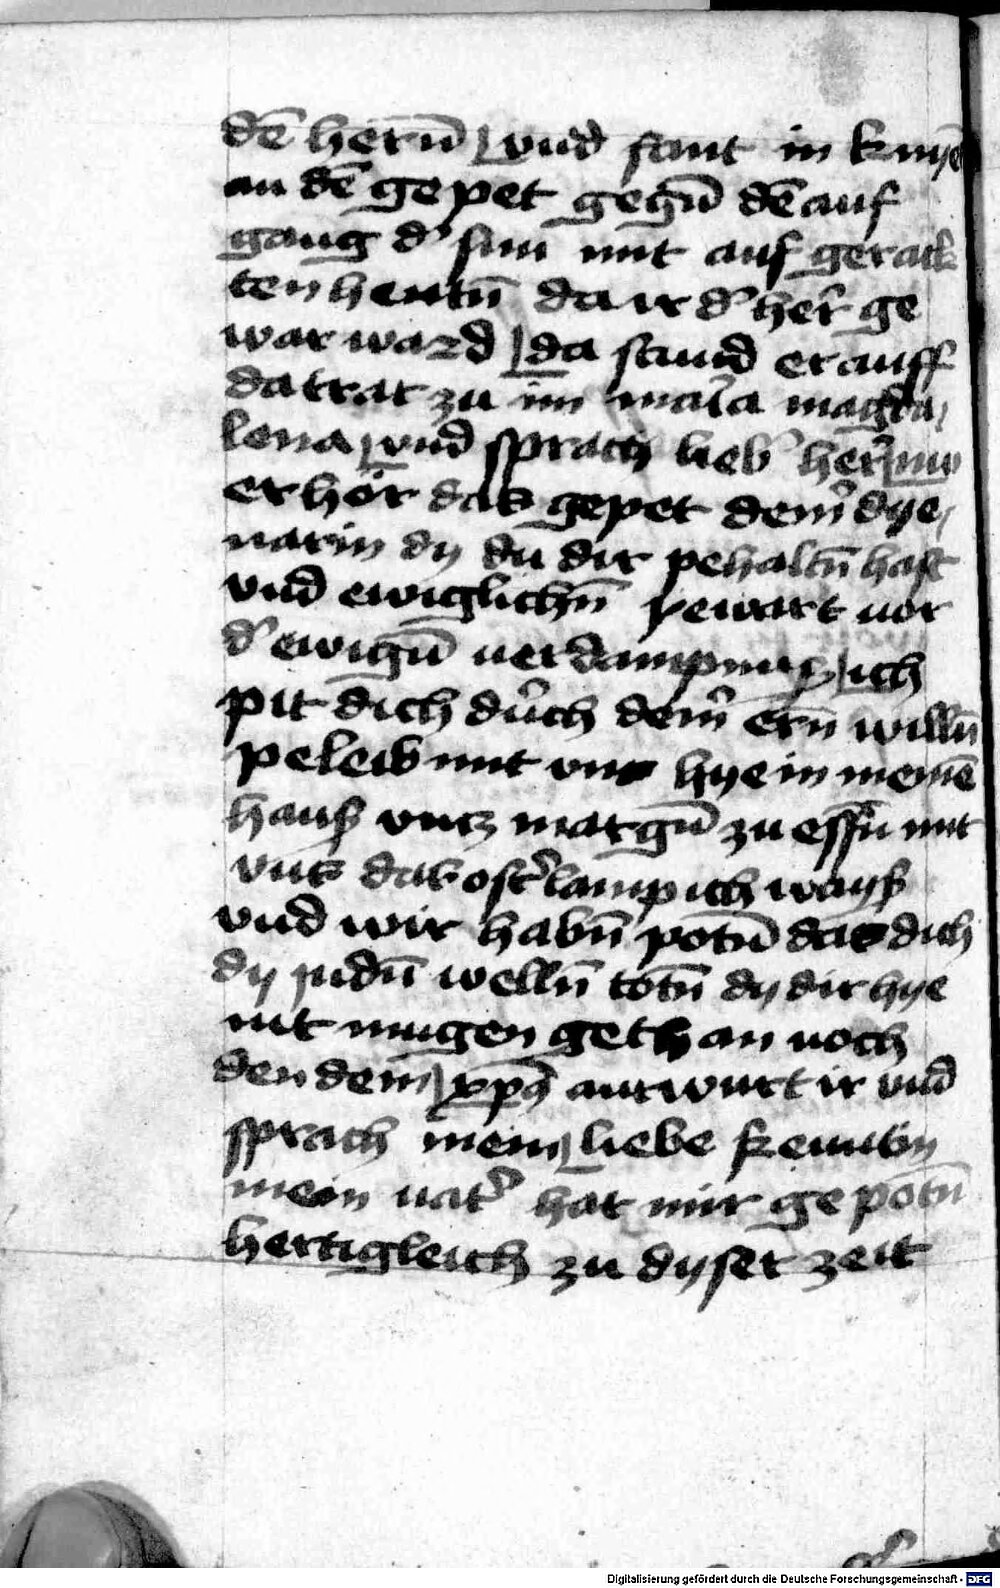 dē herñ vnd fant in knyē
an dē gepet gegñ dē auf
gang d' sun mit auf gerack
ten hentñ da ir d' her̄ ge
war ward da stund er auff
da trat zu im maria magda
lena vnd sprach lieb' her̄ nw
er hör das gepet dein' dye
narin dy du dir pehaltñ hast
vnd ewiglichñ pewart vor
d' ewigñ verdampnuß ich
pit dich durch dein' ern̄ willñ
peleib mit vns hye in meinē
hauß vncz margñ zu essñ mit
vns das ost'lamp ich wayß
vnd wir habñ potñ das dich
dy judñ wellñ totñ dy dir hye
nit mugen gethan noch
den dein xp̄s antwurt ir vnd
sprach mein liebe frewntin
mein uat' hat mir gepotñ
hertigleich zu dyser zeit
Digitalisierung gefördert durch die Deutsche Forschungsgemeinschaft - DFG